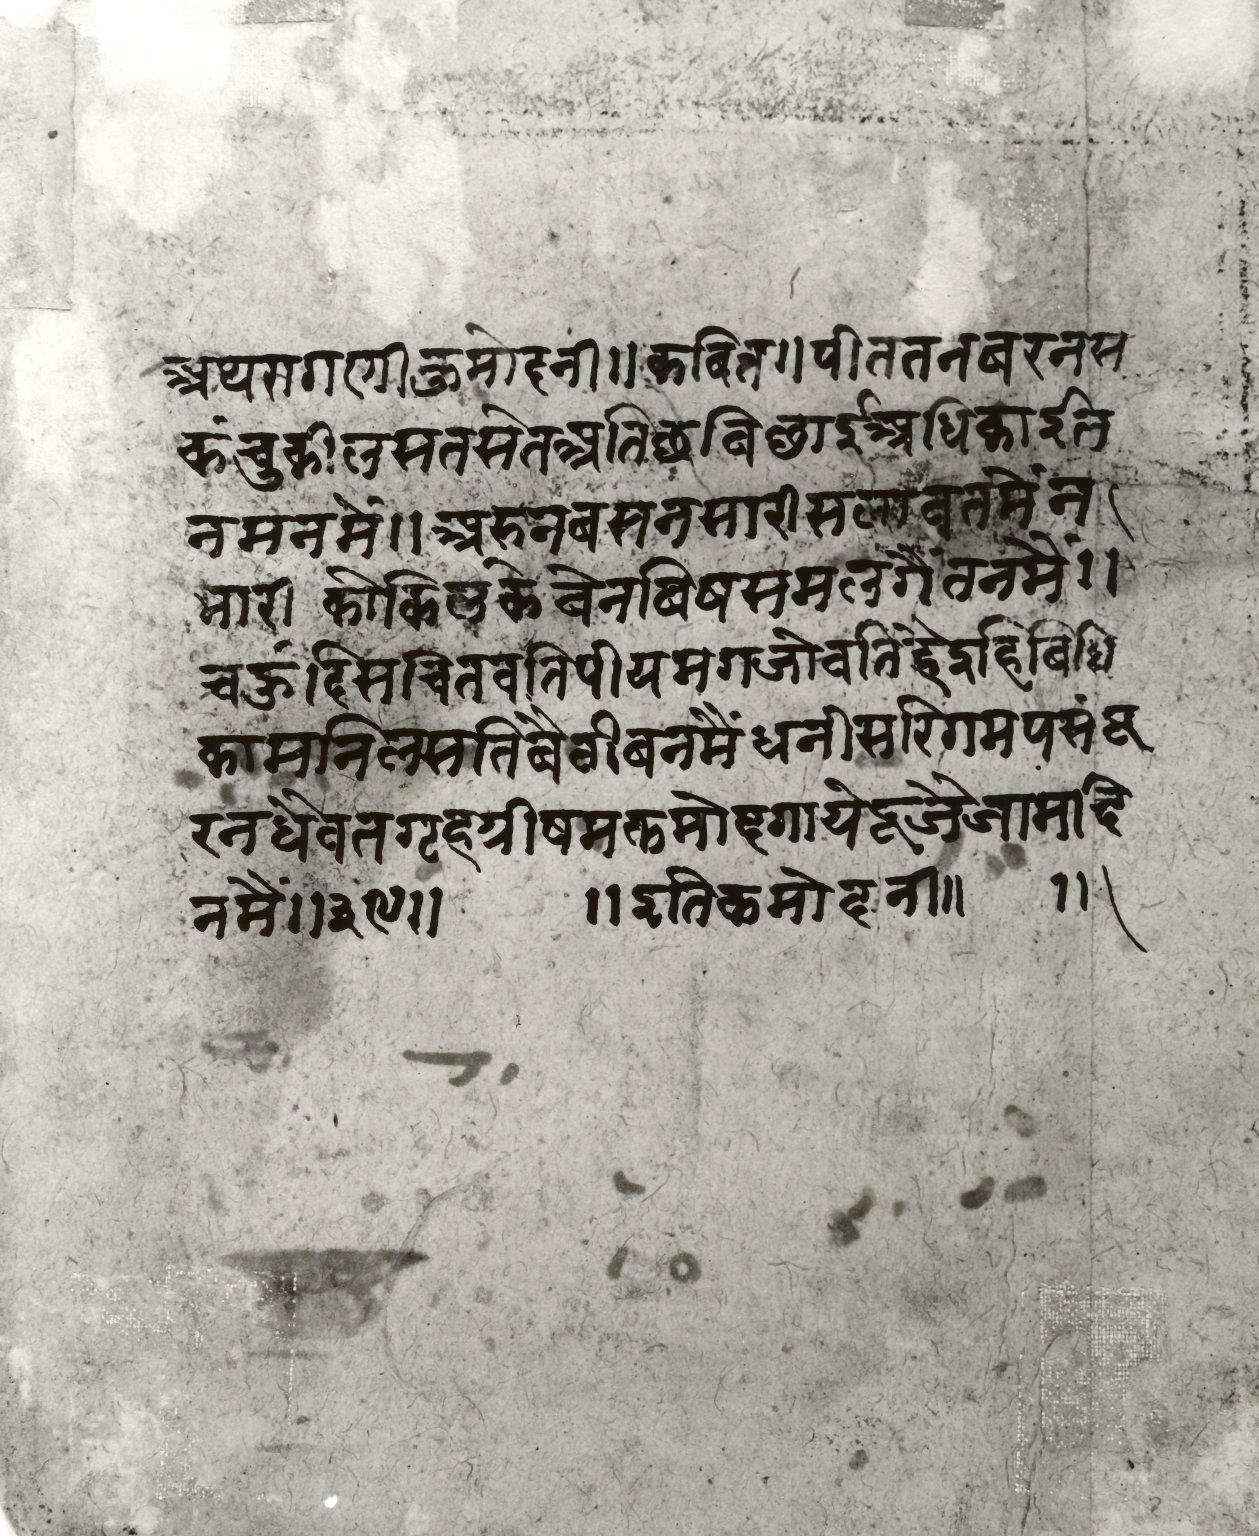 अथरागणीकुमोहनी॥कबित॥पीततनबरनस
कंचुकीलसतसेतअतिछबिछाईअधिकाईत
नमनमें॥अरुनबसनसारीसलाबतमेंन
मारी कोकिलकेबेनबिषसमलगैंतनमें॥
चक्रहिसचितवतिपीयमगजोवतिहैइहिबिधि
कामानिलसतिबैठीबनमैंधनीसरिगमपसंपू
रनधैवतगृहग्रीषमकुमोहगायेदूजैजामदि
नमैं॥३९॥ ॥इतिकुमोहनी॥ ॥